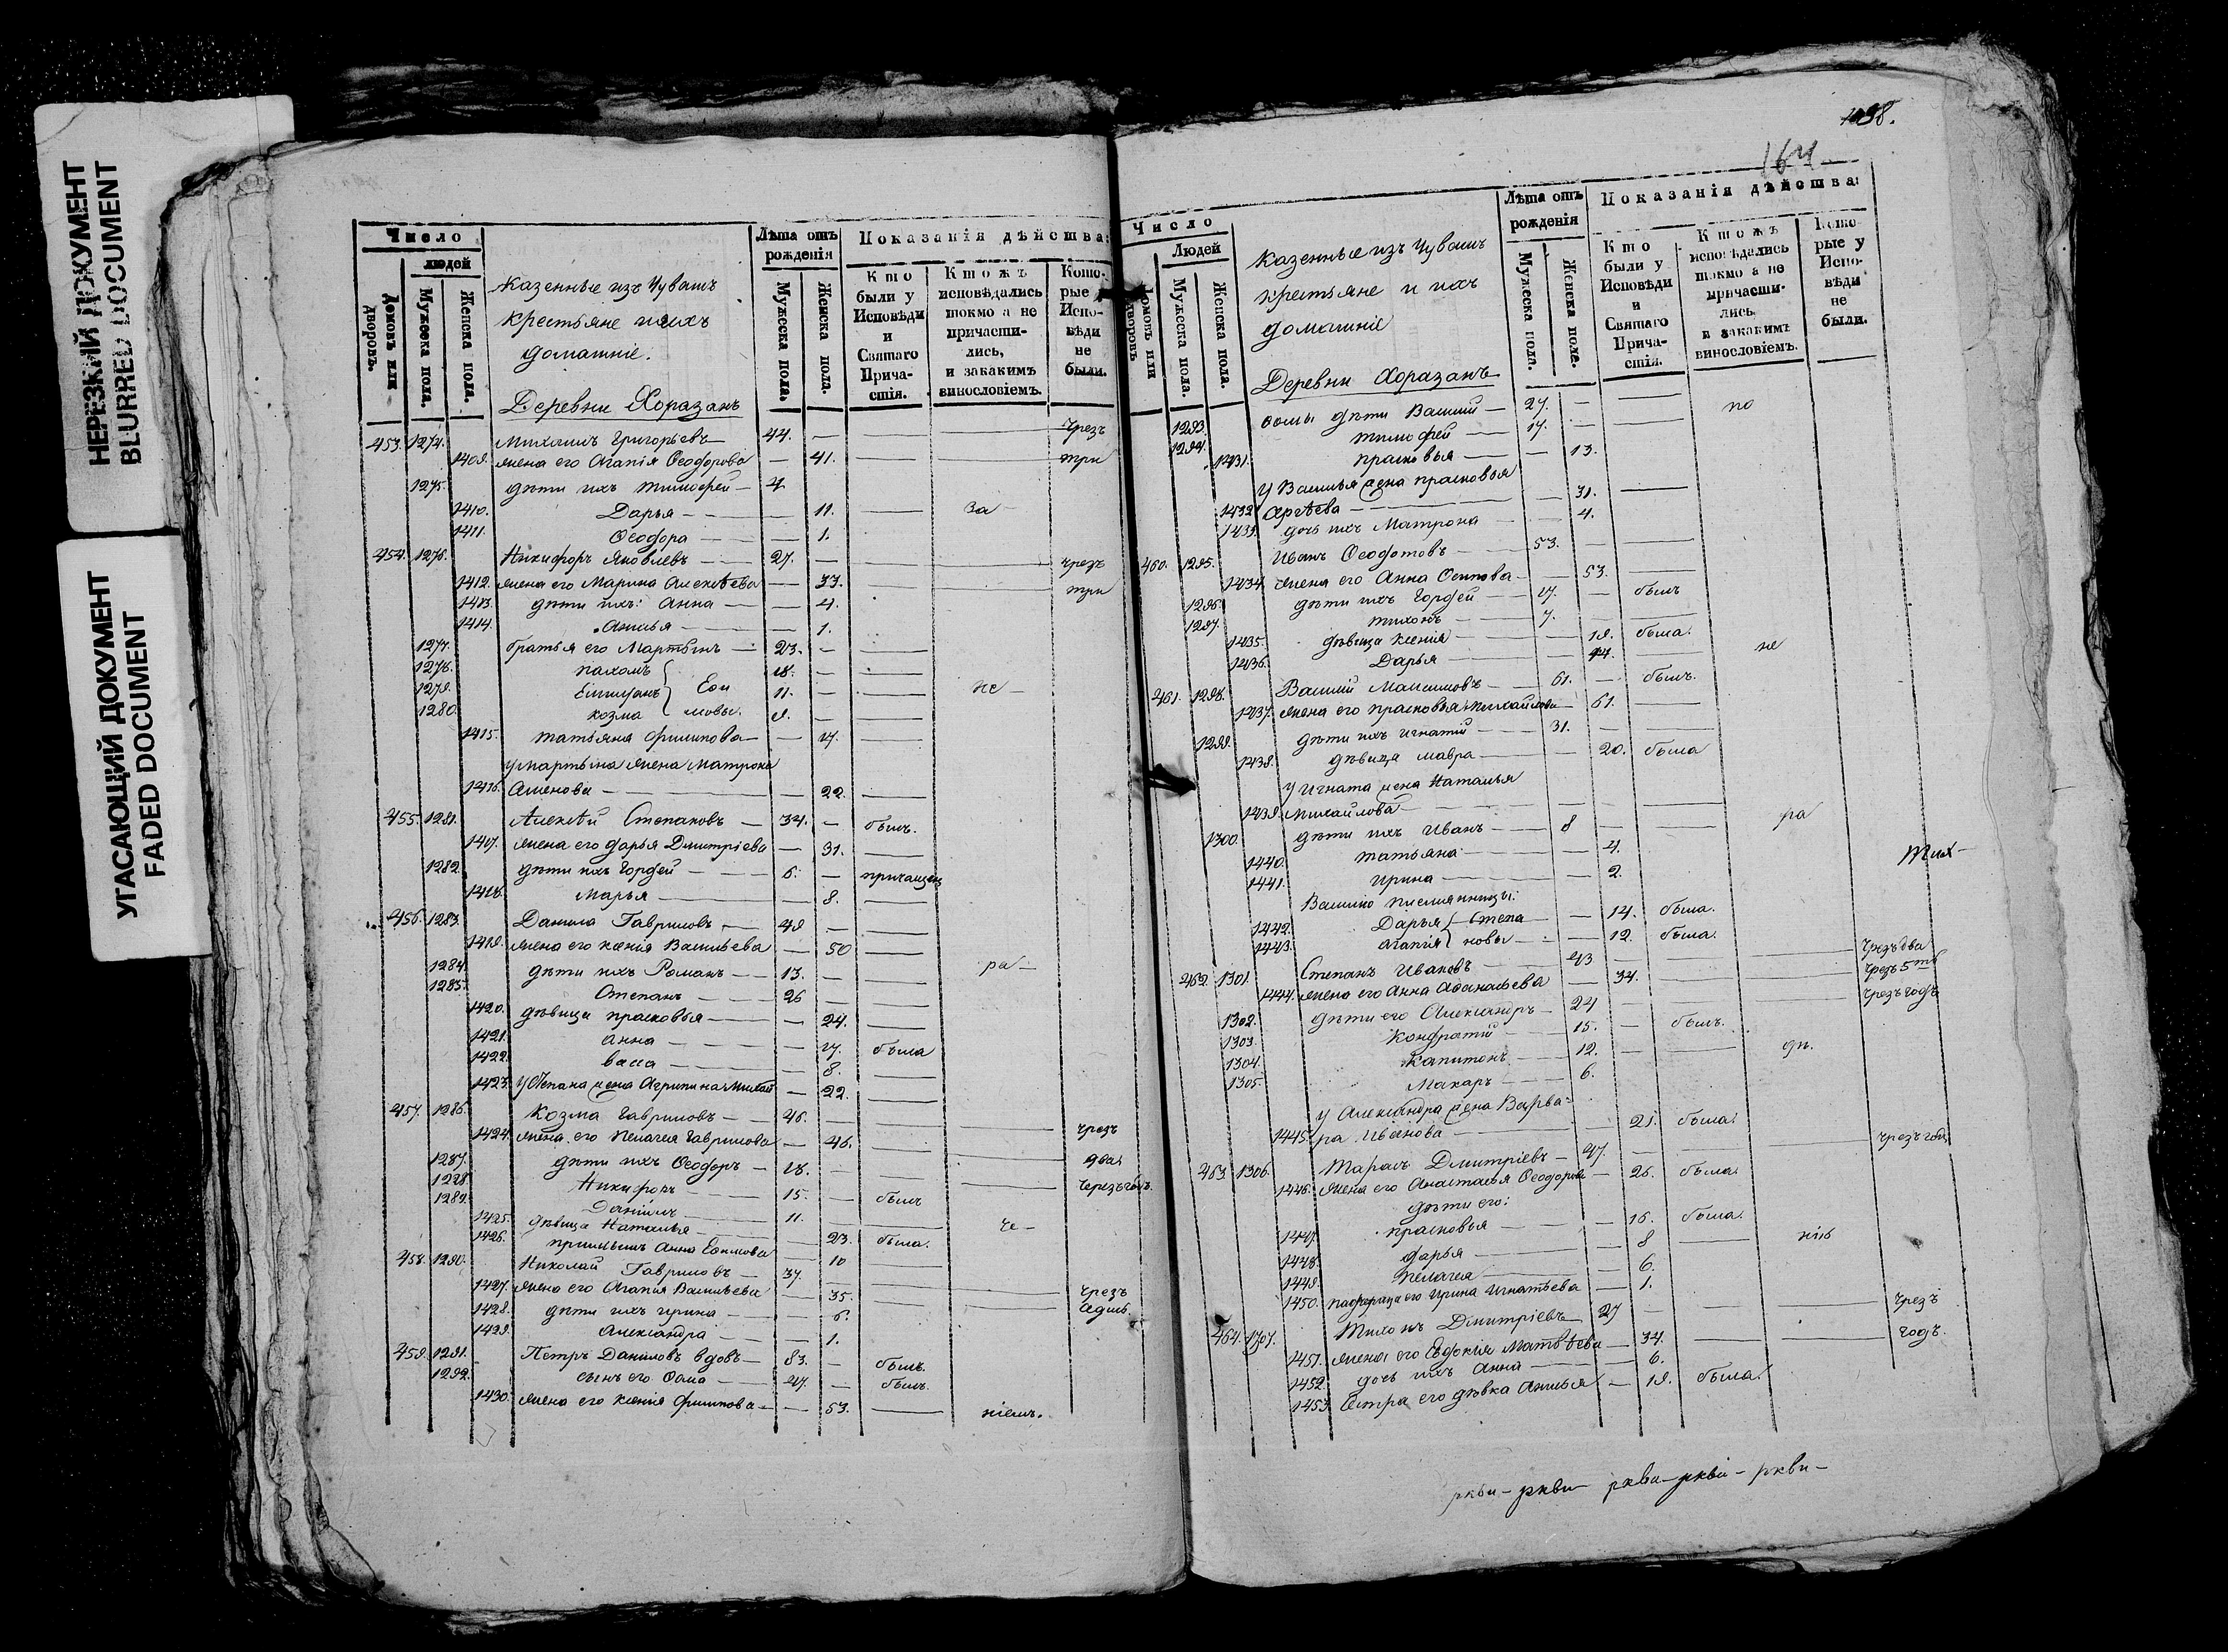 НЕРЕЗКИЙ ДОКУМЕНТ
BLURRED DOCUMENT
УГАСАЮЩИЙ ДОКУМЕНТ
FADED DOCUMENT
Число
людей
Домовъ или дворовъ.
Мужеска пола.
Женска пола.
Казенные изъ Чувашъ
крестьяне и ихъ
домашніе.
Деревни Хоразанъ
Лѣта отъ рожденія
Мужеска пола.
Женска пола.
Показанія дѣйства:
Кто были у Исповѣди и Святаго Причастія.
Ктожъ исповѣдались токмо а не причастились, и закакимъ винословіемъ.
Которые у Исповѣди не были.
453. 1274. Михаилъ Григорьевъ 44. — чрезъ
1409. жена его Агапія Ѳеодорова — 41. три
1275. дѣти ихъ Тимофей — 4
1410. Дарья — 11. За
1411. Ѳеодора — 1.
454. 1276. Никифоръ Яковлевъ — 27. — чрезъ
1412. жена его Марина Алексѣева — 33. три
1413. дѣти ихъ: Анна — 4.
1414. Анисья — 1.
1277. братья его Мартынъ — 23. —
1278. пахомъ 18. —
1279. 11. — не
1280. козма 9. —
1415. татьяна филипова — 17.
у мартына жена Матрона
1416. Семенова — 22.
455. 1281. Алексѣй Степановъ — 34. — былъ.
1417. жена его дарья Дмитріева — 31.
1282. дѣти ихъ Гордей — 6. —
1418. Марья — 8.
456. 1283. Данила Гавриловъ — 49 —
1419. жена его ксенія Васильева — 50
1284. дѣти ихъ Романъ — 13. — ра
1285. Степанъ — 26 —
1420. дѣвица прасковья — 24.
1421. анна — 17. была
1422. васса — 8.
1423. у Степана жена Агрипина Михай — 22.
457. 1286. Козма Гавриловъ — 46. чрезъ
1424. жена его Пелагея Гаврилова — 46. два
1287. дѣти ихъ Ѳеодоръ — 18. чрезъ годъ
1288. Никифоръ — 15. — былъ
1289. Даніилъ — 11. че
1425. дѣвица Наталья — 23. была.
1426. Анна Ефимова — 10
458. 1290. Николай Гавриловъ — 37. — чрезъ
1427. жена его Агапія Васильева — 35.
1428. дѣти ихъ ирина — 6.
1429. Александра — 1.
459. 1291. Петръ Даниловъ вдовъ — 83. — былъ.
1292. сынъ его Ѳома — 47. — былъ.
1430. жена его ксенія филипова — 53. ніемъ.
1098.
164
Число
Людей
Домовъ или дворовъ
Мужеска пола.
Женска пола.
Казенные изъ Чувашъ
крестьяне и ихъ
домашніе
Деревни Хоразанъ
Лѣта отъ рожденія
Мужеска пола.
Женска пола.
Показанія дѣйства:
Кто были у Исповѣди и Святаго Причастія.
Ктожъ исповѣдались токмо а не причастились, и закакимъ винословіемъ.
Которые у Исповѣди не были.
1293. Ѳомы дѣти Василій — 27. — по
1294. тимофей — 17. —
1431. прасковья — 13.
у Василья жена прасковья
1432. Сергѣева — 31.
1433. дочь ихъ Матрона — 4.
460. 1295. Иванъ Ѳеодотовъ — 53. —
1434. жена его Анна Осипова — 53.
1296. дѣти ихъ Гордей — 17. — былъ
1297. тихонъ — 7. —
1435. дѣвица ксенія — 19. была. не
1436. Дарья — 14.
461. 1298. Василій Максимовъ — 61. — былъ.
1437. жена его прасковья Михайлова — 61.
1299. дѣти ихъ игнатій — 31. —
1438. дѣвица мавра — 20. была
у Игната жена Наталья
1439. Михайлова —
1300. дѣти ихъ Иванъ — 8 — ра
1440. татьяна — 4.
1441. ирина — 2.
Василью племянницы:
1442. Дарья Степа — 14. была.
1443. агапія новы — 12. была.
462. 1301. Степанъ Ивановъ — 43 — чрезъ два
1444. жена его Анна Афанасьева — 34. чрезъ 5ть
1302. дѣти его Александръ — 24 — чрезъ годъ
1303. Кондратій — 15. — былъ.
1304. Капитонъ — 12. — дѣ.
1305. Макаръ — 6.
у Александра жена Варва
1445. ра Иванова — 21. была.
463. 1306. Тарасъ Дмитріевъ — 47. — чрезъ годъ
1446. жена его Анастасья Ѳеодорова — 26. была
дѣти его:
1447. прасковья — 16. была.
1448. дарья — 8 ніѣ
1449. Пелагея — 6.
1450. его Ирина Игнатьева — 1.
464. 1307. Тихонъ Дмитріевъ 27 — чрезъ
1451. жена его Евдокія Матвѣева — 34. годъ.
1452. дочь ихъ Анна — 6.
1453. Сестра его дѣвка Анисья — 19. была.
ркви — ркви — ркви — ркви — ркви —